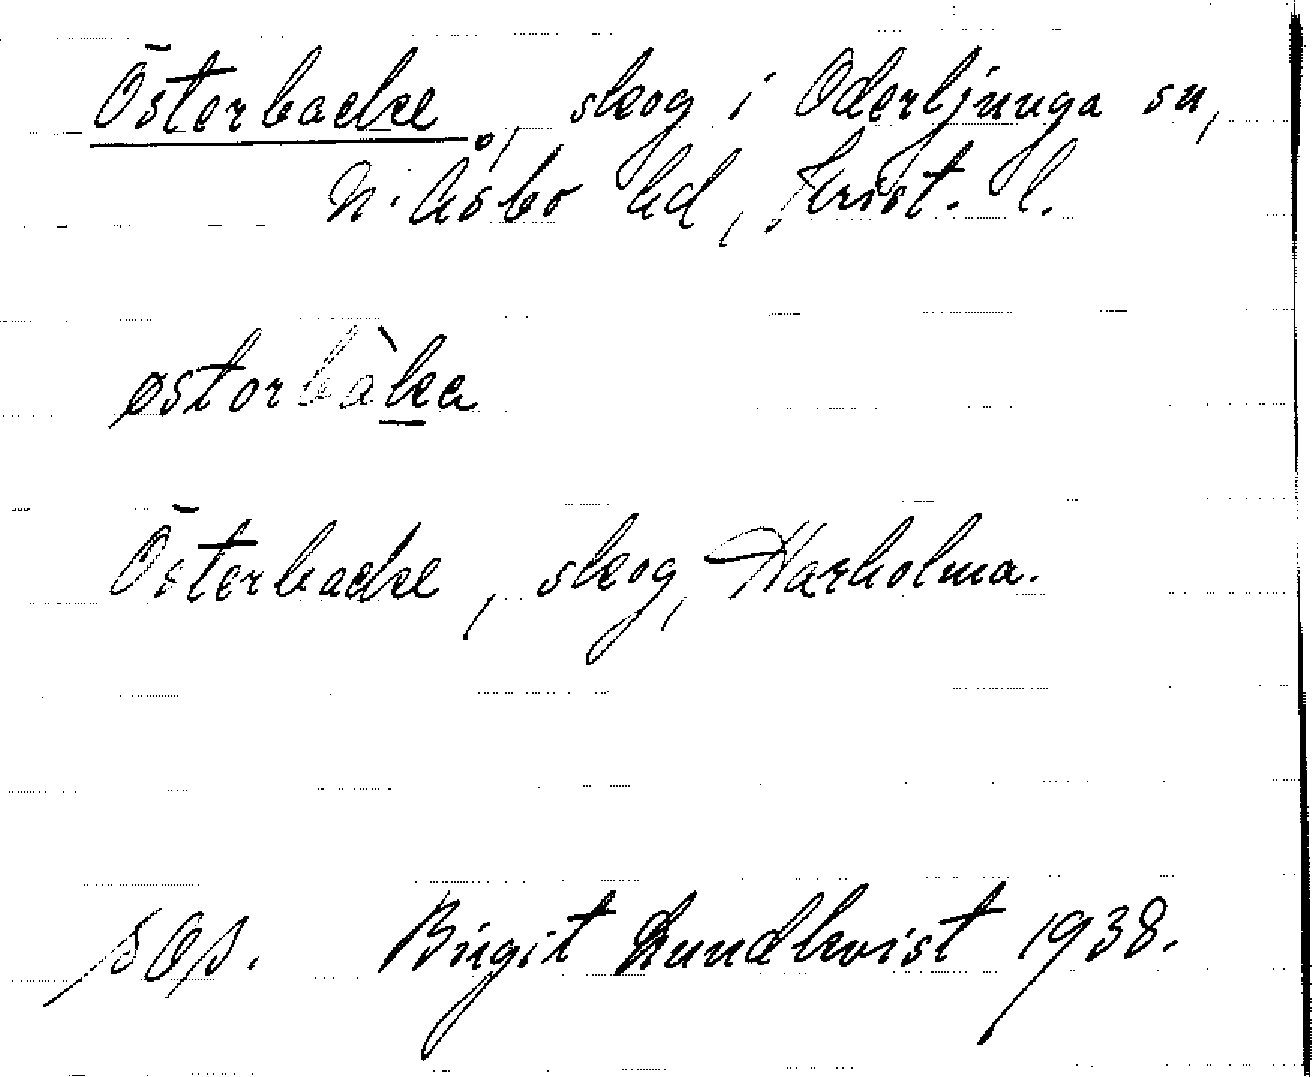 Österbacke, skog i Oderljunga sn,
N. Åsbo hd, Krist. l.
østorbàka
Österbacke, skog, Harholma.
Birgit Lundkvist 1938.